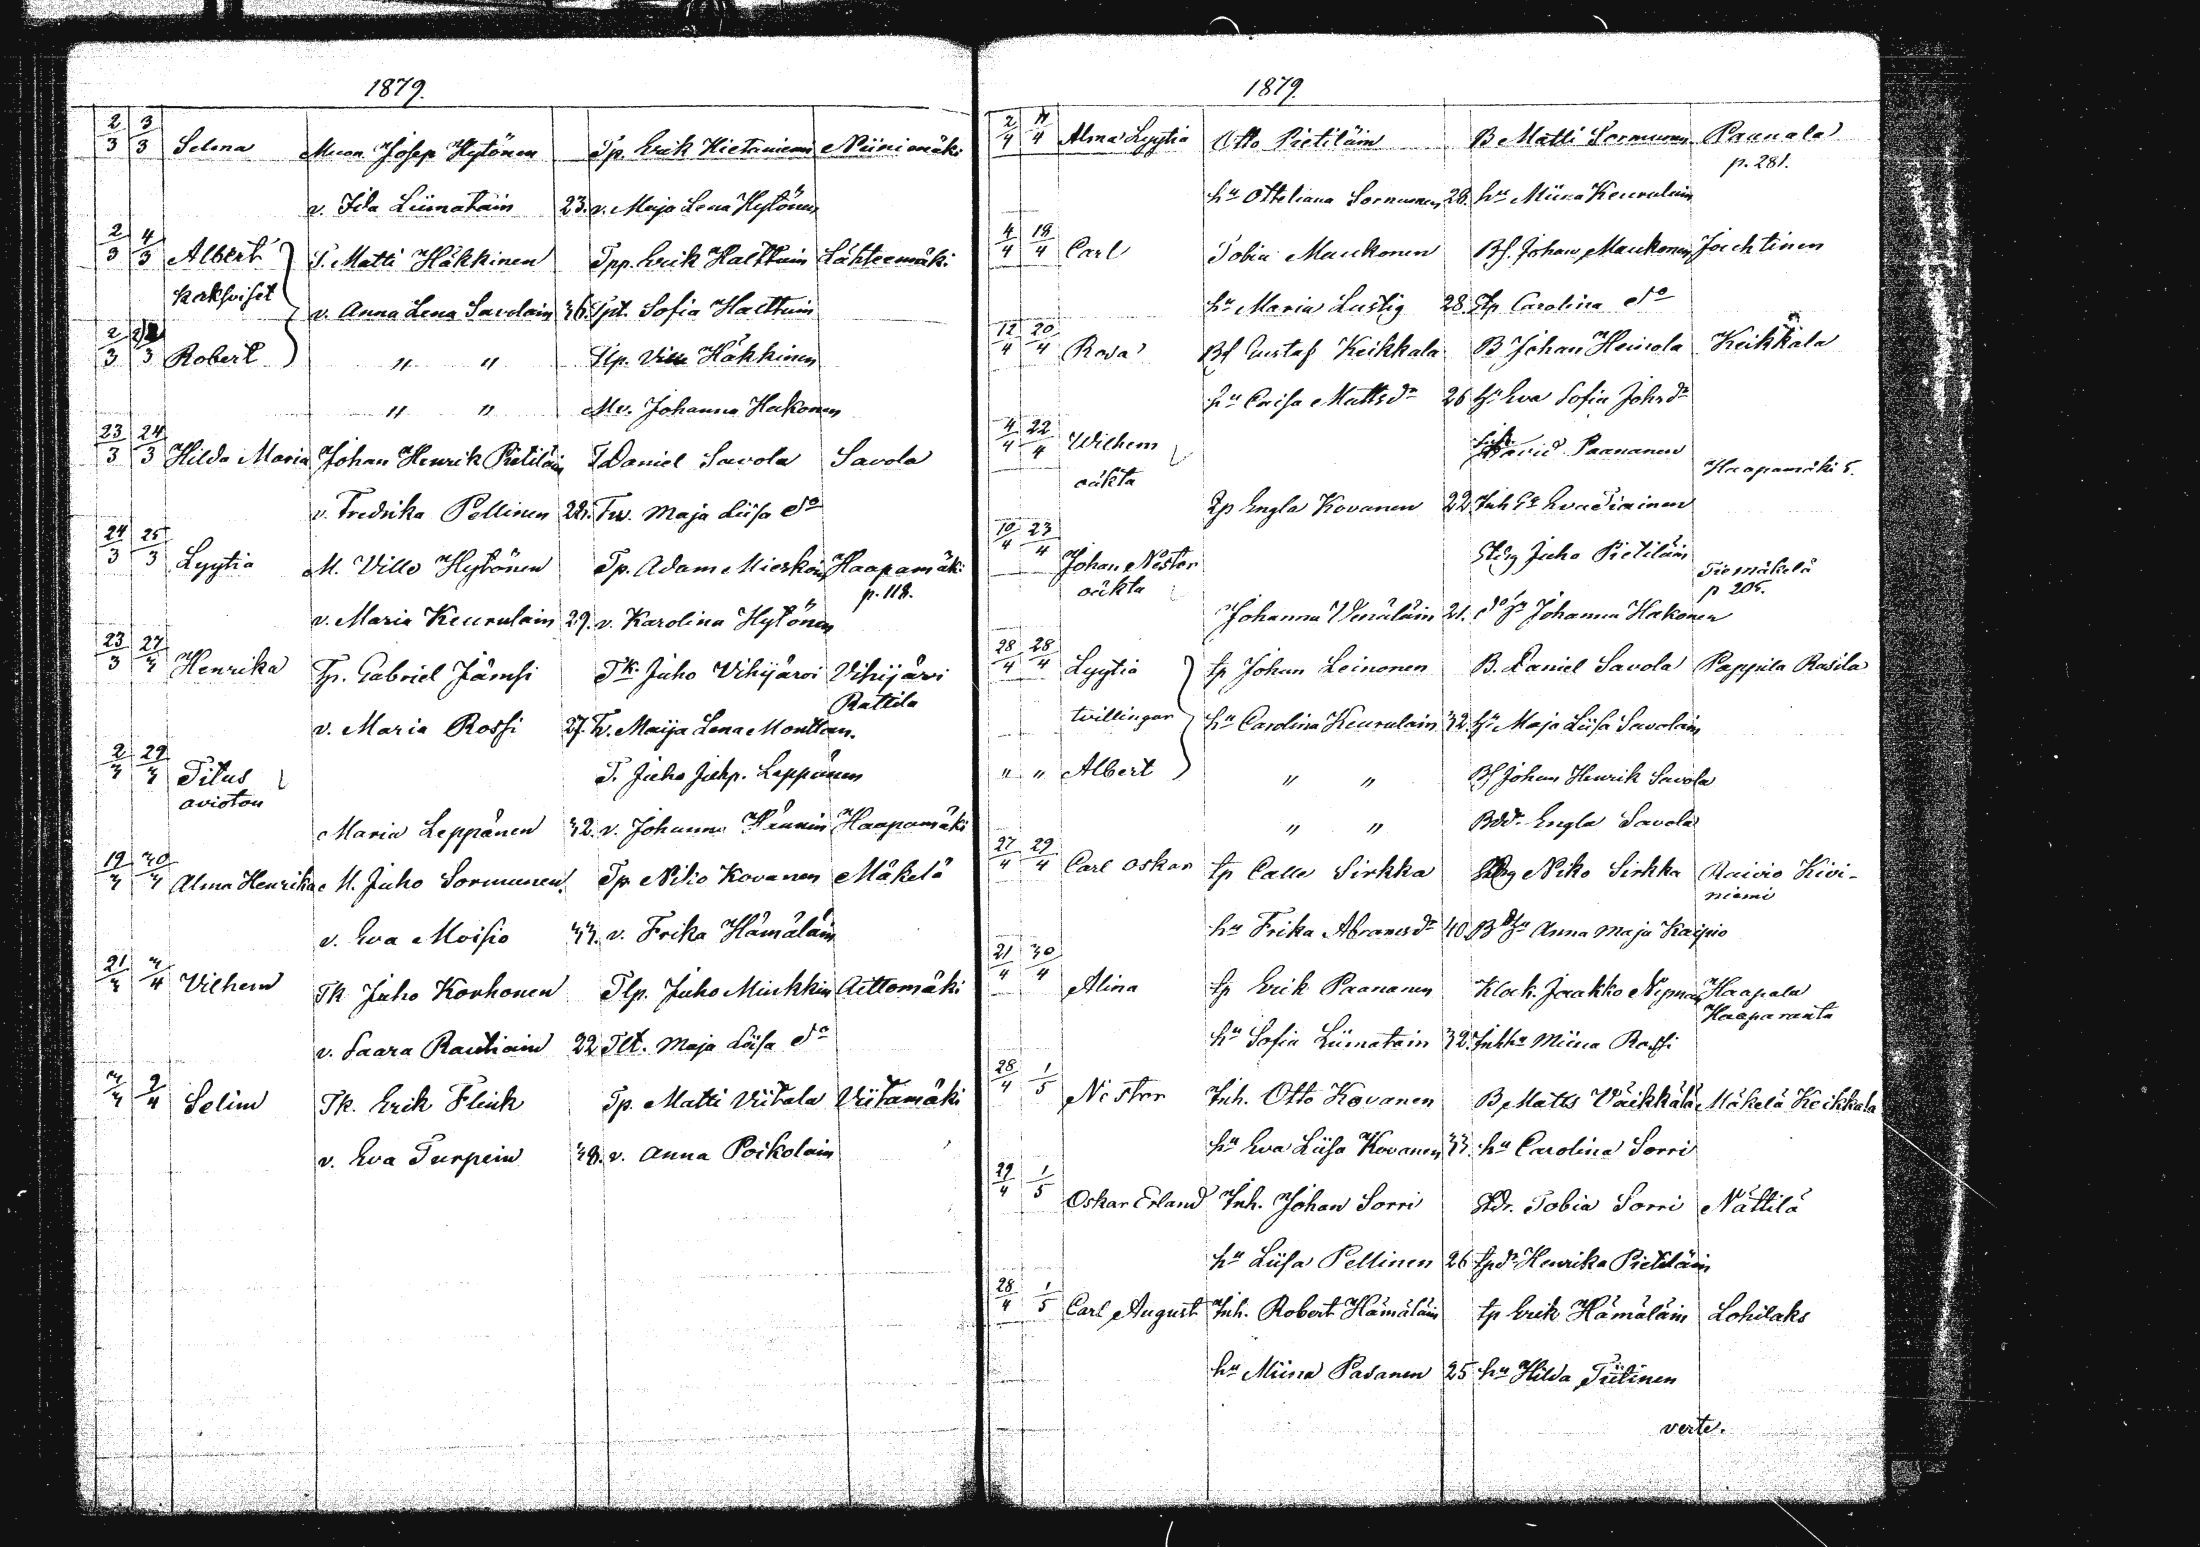 1879.
2/3 3/3 Selma Muon. Josep Hytönen Tp. Erik Hietaniemi Niinimäki
v. Ida Liimatain 23. v. Maja Lena Hytönen
2/3 4/3 Albert T. Matti Häkkinen Tpp. Erik Halttuin Lähteemäki
kaksoiset v. Anna Lena Savolain 36. Tpt. Sofia Halttuin
2/3 Robert " " Tlp. Ville Häkkinen
" " Mv. Johanna Hakonen
23/3 24/3 Hilda Maria Johan Henrik Pietiläin T Daniel Savola Savola
v. Fredrika Pellinen 22. Tw. Maja Liisa do
24/3 25/3 Lyytia M. Ville Hytönen Tp. Adam Mieskoin Haapamäki
p. 118.
v. Maria Keurulain 29. v. Karolina Hytönen
23/3 27/3 Henrika Tp. Gabriel Jämsi Tk. Juho Vihijärvi Vihijärvi
Rattila
v. Maria Rossi 27. Tv. Maija Lena Monttin.
2/3 29/3 Titus T. Juho Juhp. Leppänen
avioton
Maria Leppänen 32. v. Johanna Hännin Haapamäki
19/3 30/3 Alma Henrika M. Juho Sormunen Tp. Niko Kovanen Mäkelä
v. Eva Moisio 33. v. Frika Hämäläin
21/3 3/4 Vilhem Tk Juho Korhonen Tlp. Juho Minkkin Aittomäki
v. Saara Rautiain 22 Tlt. Maja Liisa do
3/4 9/4 Selim Tk. Erik Flink Tp. Matti Viitala Viitamäki
v. Eva Turpein 38. v. Anna Poikolain
1879.
2/4 14/4 Alma Lyytia Otto Pietiläin B Matti Sormunen Paanala
p. 281.
hu Otteliana Sormunen 28. hu Miina Keurulain
4/4 18/4 Carl Tobia Maukonen Bf. Johan Maukonen Jachtinen
hu Maria Lustig 28. Tp Carolina do
12/4 20/4 Rosa Bf Gustaf Keikkala B Johan Heinola Keikkala
hu Caisa Mattsdr 26 hu Eva Sofia Johsdr
4/4 22/4 Wilhem David Paananen
Haapamäki 5.
oäkta
Tp Engla Kovanen 22 Inhha Eva Tiainen
10/4 23/4 Stdrg Juho Pietiläin
Johan Nestor Tiemäkelä
oäkta p 205.
Johanna Wenäläin 21. Johanna Hakonen
28/4 28/4 Lyytia tp Johan Leinonen B. Daniel Savola Pappila Rasila
tvillingar hu Carolina Keurulain 32. hu Maja Liisa Savolain
" " Albert " " Bf Johan Henrik Savola
" " Bdr. Engla Savola
27/4 29/4 Carl Oskar tp Calle Sirkka Niko Sirkka Raivio Kivi-
niemi
hu Frika Abramsdr 40. Anna Maja Kaipio
21/4 30/4 Alina tp Erik Paananen Klock. Jaakko Nipman Haapala
Haaparanta
hu Sofia Liimatain 32. Inhhu Miina Rossi
28/4 1/5 Nestor Inh. Otto Kovanen B Matts Väikkälä Mäkelä Keikkala
hu Eva Liisa Kovanen 33. hu Carolina Sorri
29/4 1/5 Oskar Erland Inh. Johan Sorri Stdr. Tobia Sorri Nättilä
hu Liisa Pellinen 26 tpdr Henrika Pietiläin
28/4 1/5 Carl August Inh. Robert Hämäläin tp Erik Hämäläin Lohilaks
hu Miina Pasanen 25 hu Hilda Tiitinen
verte.